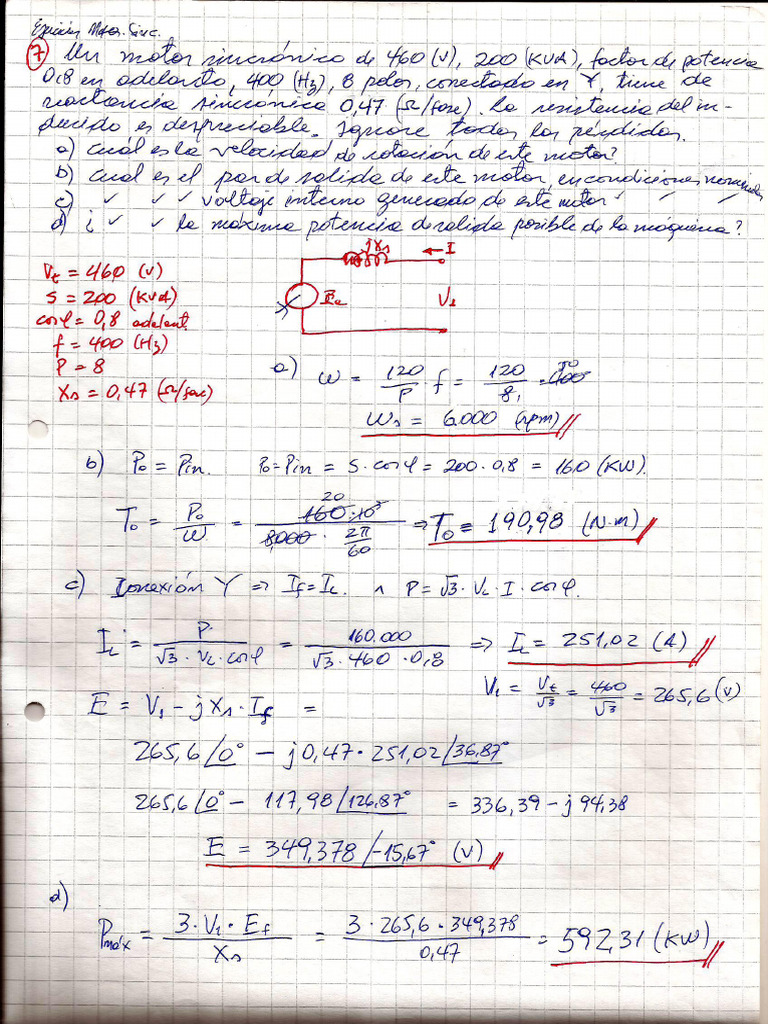 Ejercicios Motor. Sinc.
7 Un motor sincrónico de 460 (V), 200 (KVA), factor de potencia
0,8 en adelanto, 400 (Hz), 8 polos, conectado en Y, tiene de
reactancia sincrónica 0,47 (Ω/fase). La resistencia del in-
ducido es despreciable. Ignore todas las pérdidas.
a) cuál es la velocidad de rotación de este motor?
b) cuál es el par de salida de este motor, en condiciones normales
c) ✓ ✓ ✓ voltaje interno generado de este motor ✓ ✓ ✓
d) ¿ ✓ ✓ la máxima potencia de salida posible de la máquina?
jXs ← I
Vt = 460 (V)
S = 200 (KVA)
cosφ = 0,8 adelant.
f = 400 (Hz)
P = 8
Xs = 0,47 (Ω/fase)
V1
a) W = 120/P · f = 120/8 · 400
Ws = 6.000 (rpm)
b) Po = Pin. Po = Pin = S · cosφ = 200 · 0,8 = 160 (KW).
To = Po/W = 160·10³/(6,000 · 2π/60) ⇒ To = 190,98 (N·m)
c) Conexión Y ⇒ If = IL. ∧ P = √3 · VL · I · cosφ.
IL = P/(√3 · VL · cosφ) = 160.000/(√3 · 460 · 0,8) ⇒ IL = 251,02 (A)
V1 = Vt/√3 = 460/√3 = 265,6 (V)
E = V1 - jXs · If =
265,6 /0° - j0,47 · 251,02 /36,87°
265,6 /0° - 117,98 /126,87° = 336,39 - j 94,38
E = 349,378 /-15,67° (V)
d)
Pmáx = 3 · V1 · Ef/Xs = 3 · 265,6 · 349,378/0,47 = 592,31 (KW)